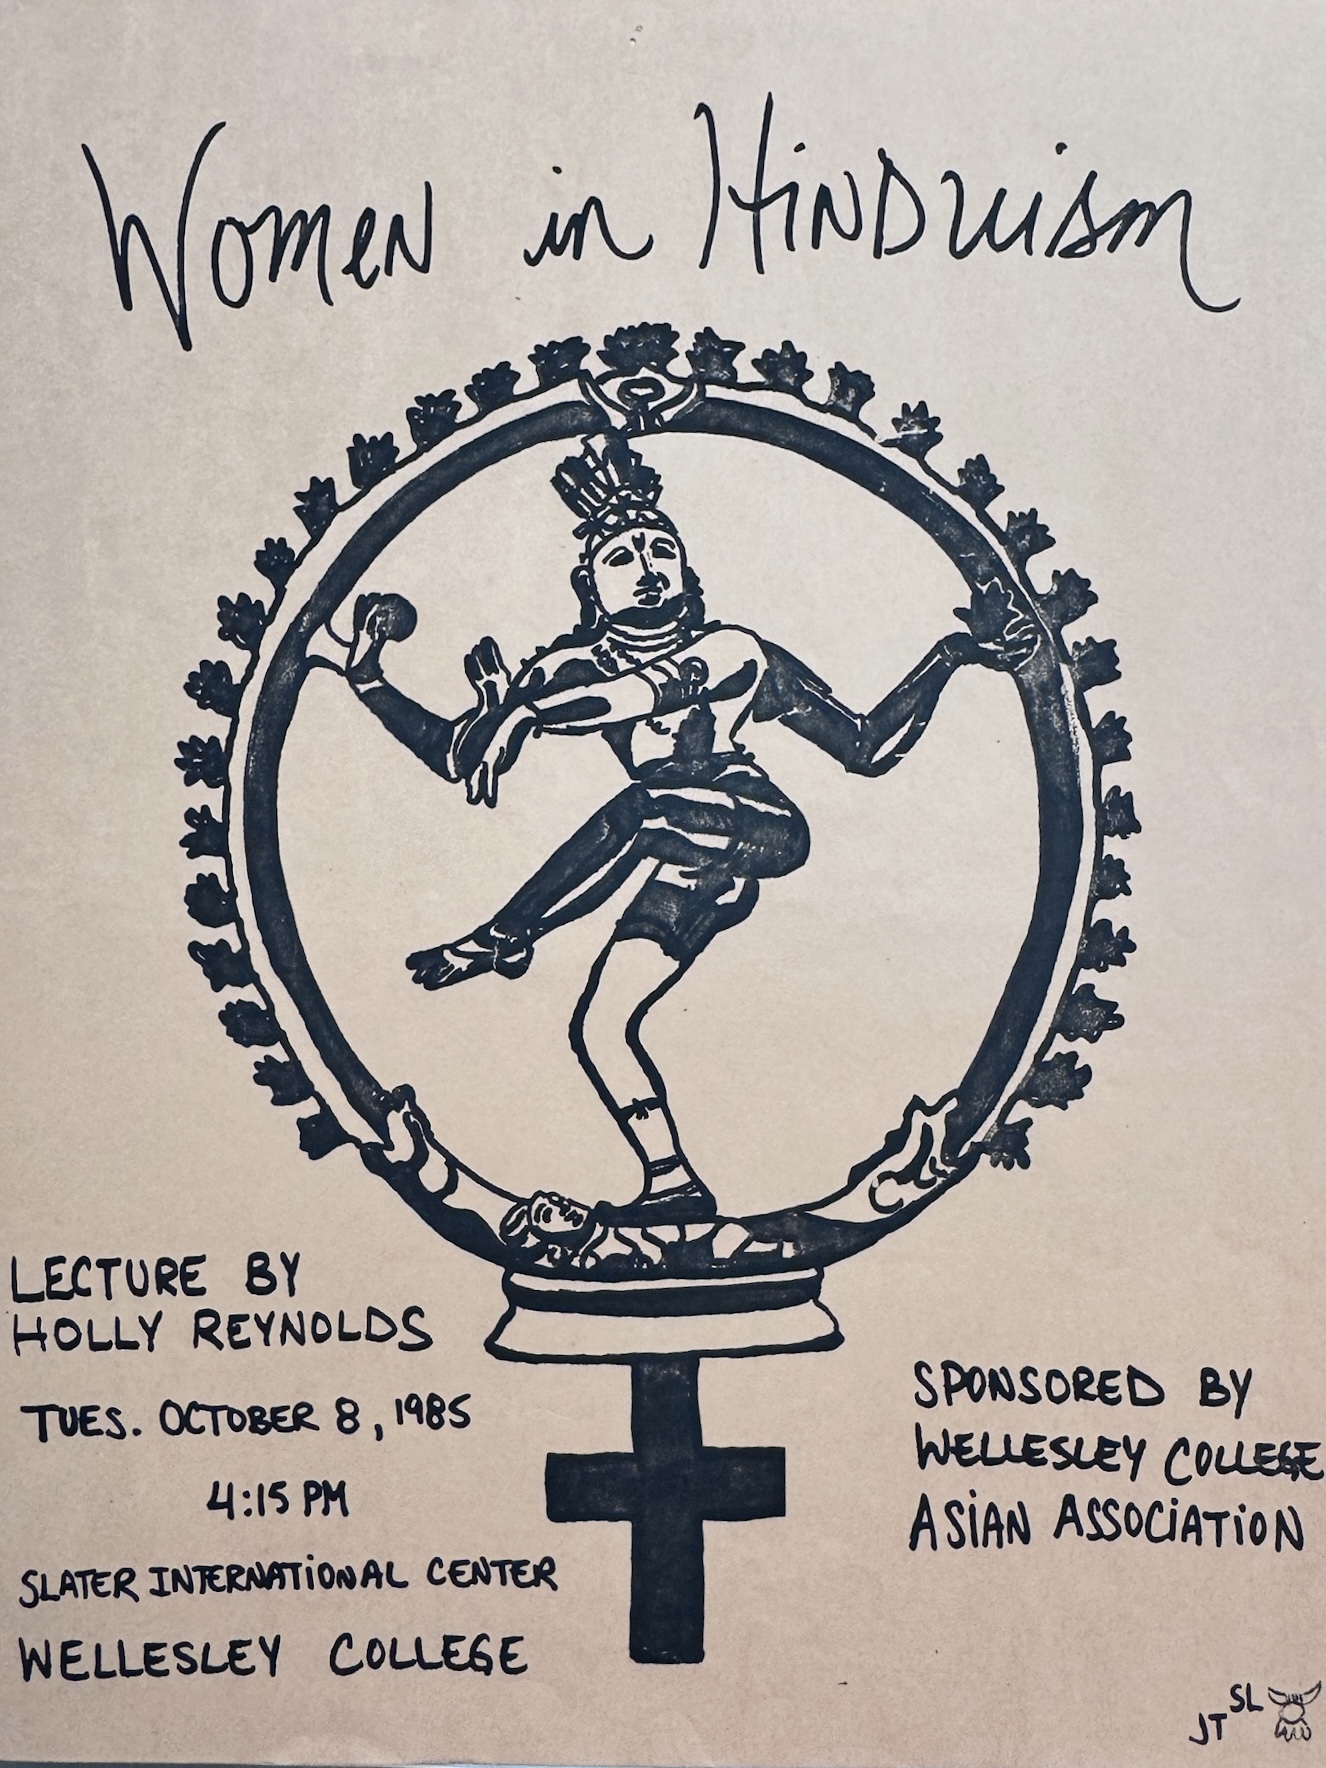 Women in Hinduism
LECTURE BY
HOLLY REYNOLDS
TUES. OCTOBER 8, 1985
4:15 PM
SLATER INTERNATIONAL CENTER
WELLESLEY COLLEGE
SPONSORED BY
WELLESLEY COLLEGE
ASIAN ASSOCIATION
SL
JT